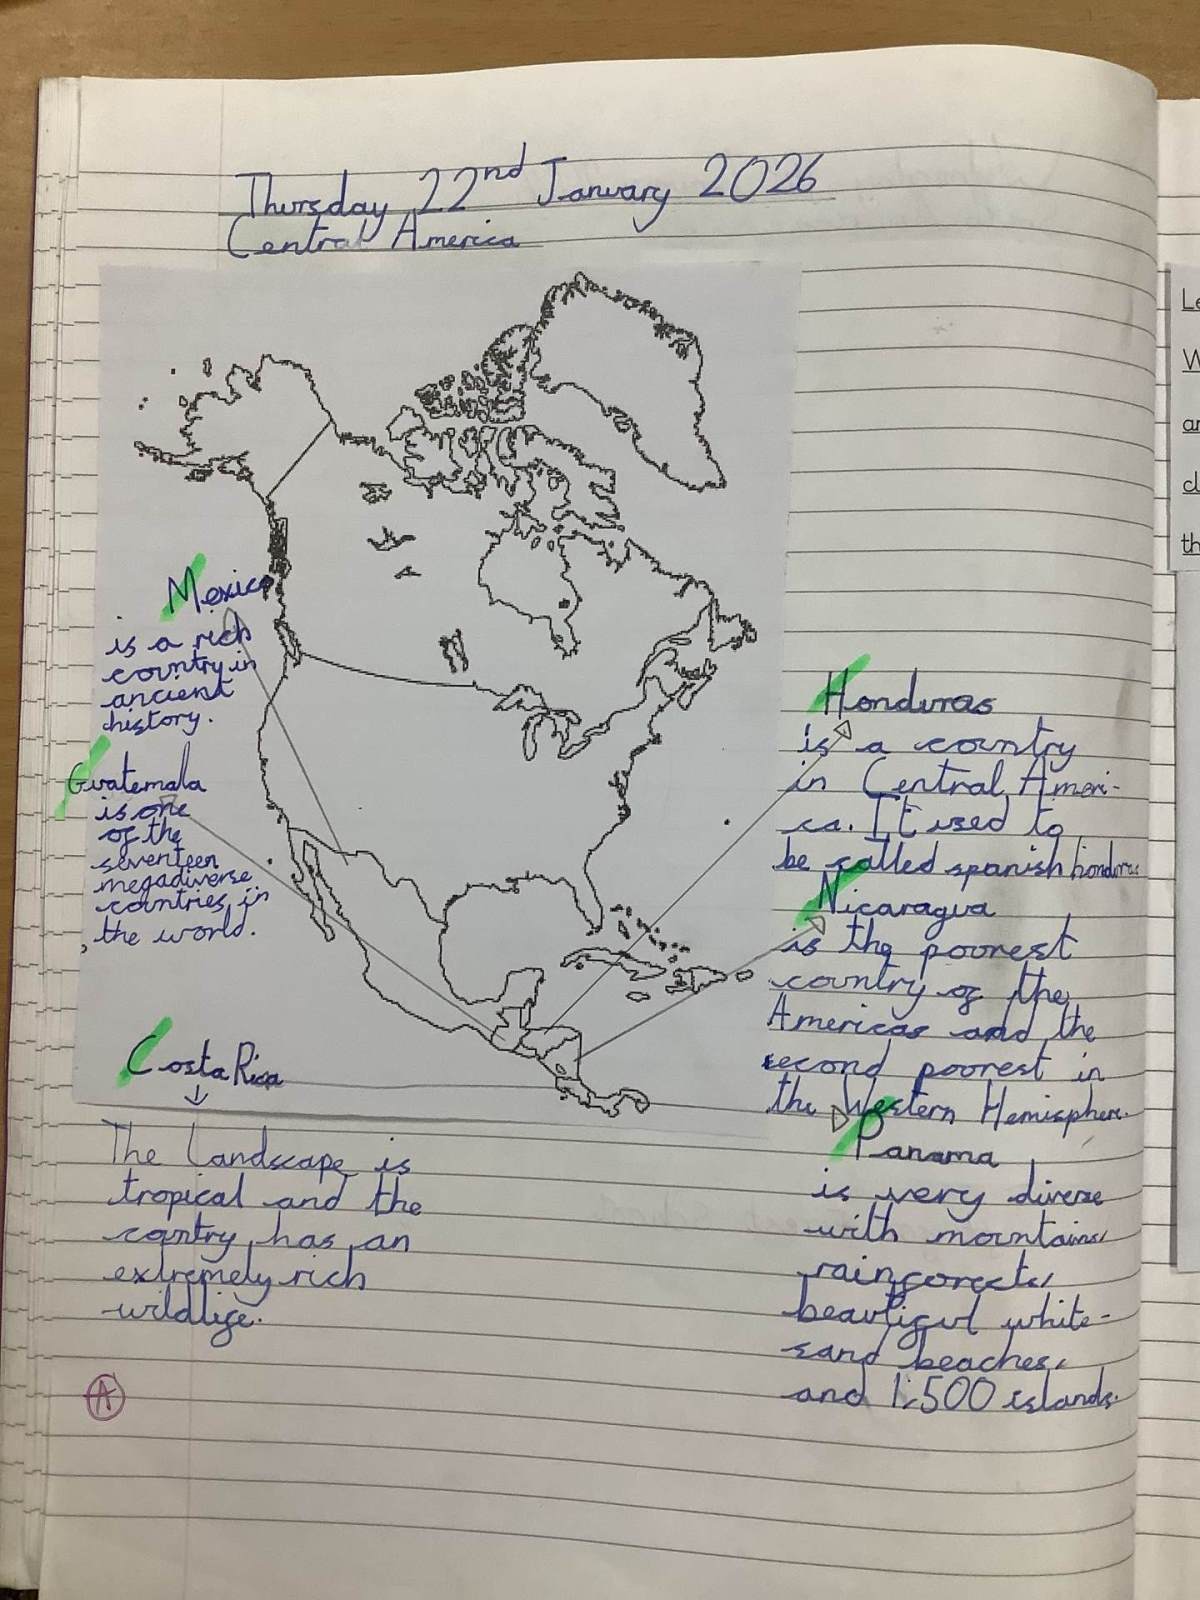 Thursday 22nd January 2026
Central America
Mexico
is a rich
country in
ancient
history.
Guatemala
is one
of the
seventeen
megadiverse
countries in
the world.
Costa Rica
The Landscape is
tropical and the
country has an
extremely rich
wildlife.
A
Honduras
is a country
in Central Ameri-
ca. It used to
be called spanish
Nicaragua
is the poorest
country of the
Americas and the
second poorest in
the Western Hemisphere.
Panama
is very diverse
with mountains,
rainforests,
beautiful white-
sand beaches,
and 1,500 islands.
Le
W
an
cl
th